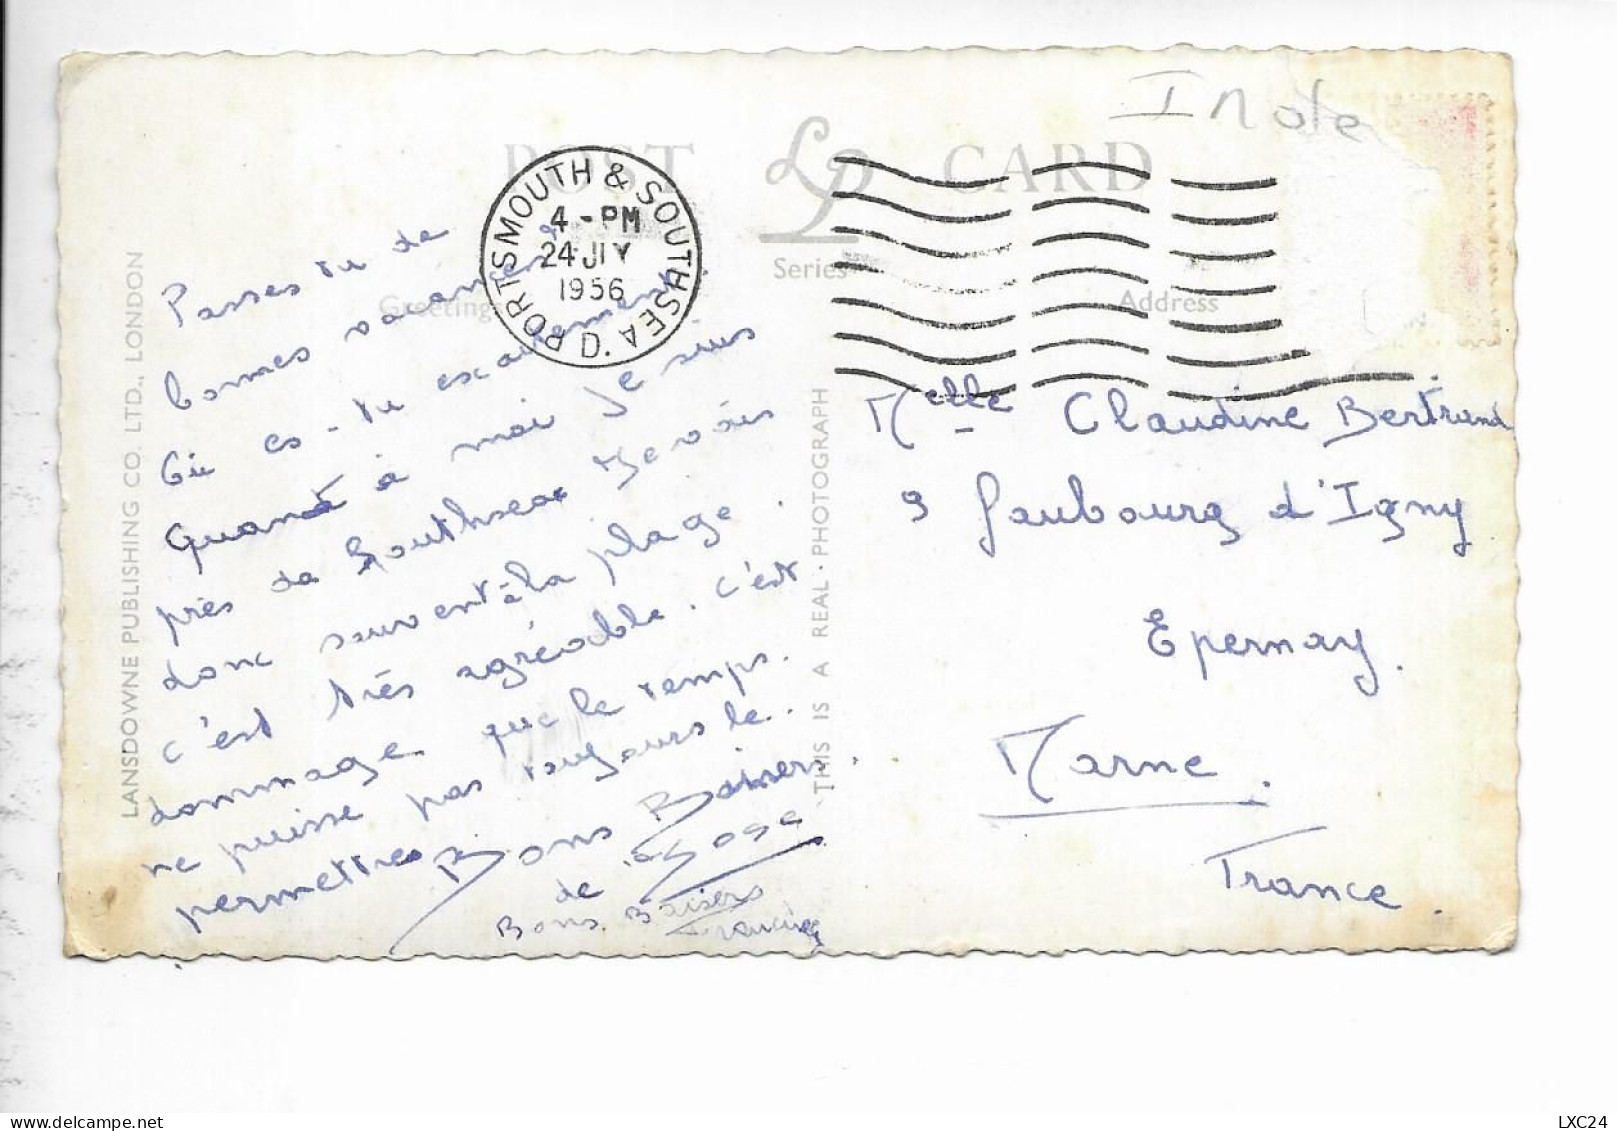 Inde
POST CARD
LP
Series
Greetings
Address
PORTSMOUTH & SOUTHSEA D
4 - PM
24 JLY
1956
LANSDOWNE PUBLISHING CO. LTD., LONDON
THIS IS A REAL PHOTOGRAPH
Passes tu de
bonnes vacances
Où es-tu exactement
Quand à moi je suis
près de Southsea Je vais
donc souvent à la plage.
c'est très agréable. C'est
dommage que le temps.
ne puisse pas toujours le..
permettre. Bons Baisers.
de
Bons Baisers
Melle Claudine Bertrand
9 faubourg d'Igny
Epernay.
Marne.
France.
LXC24